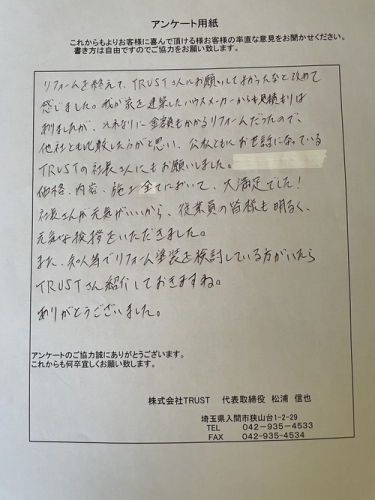 アンケート用紙
これからもよりお客様に喜んで頂ける様お客様の率直な意見をお聞かせください。
書き方は自由ですのでご協力をお願い致します。
リフォームを終えて、TRUSTさんにお願いしてよかったなと改めて
感じました。我が家を建築したハウスメーカーからも見積もりは
来ましたが、それなりに金額もかかるリフォームだったので、
他社とも比較した方がと思い、公私ともにお世話になっている
TRUSTの社長さんにもお願いしました。
価格、内容、施工全てにおいて、大満足でした!
社長さんが元気がいいから、従業員の皆様も明るく、
元気な挨拶をいただきました。
また、知人等でリフォーム塗装を検討している方がいたら
TRUSTさん紹介しておきますね。
ありがとうございました。
アンケートのご協力誠にありがとうございます。
これからも何卒宜しくお願い致します。
株式会社TRUST 代表取締役 松浦 信也
埼玉県入間市狭山台1-2-29
TEL 042-935-4533
FAX 042-935-4534